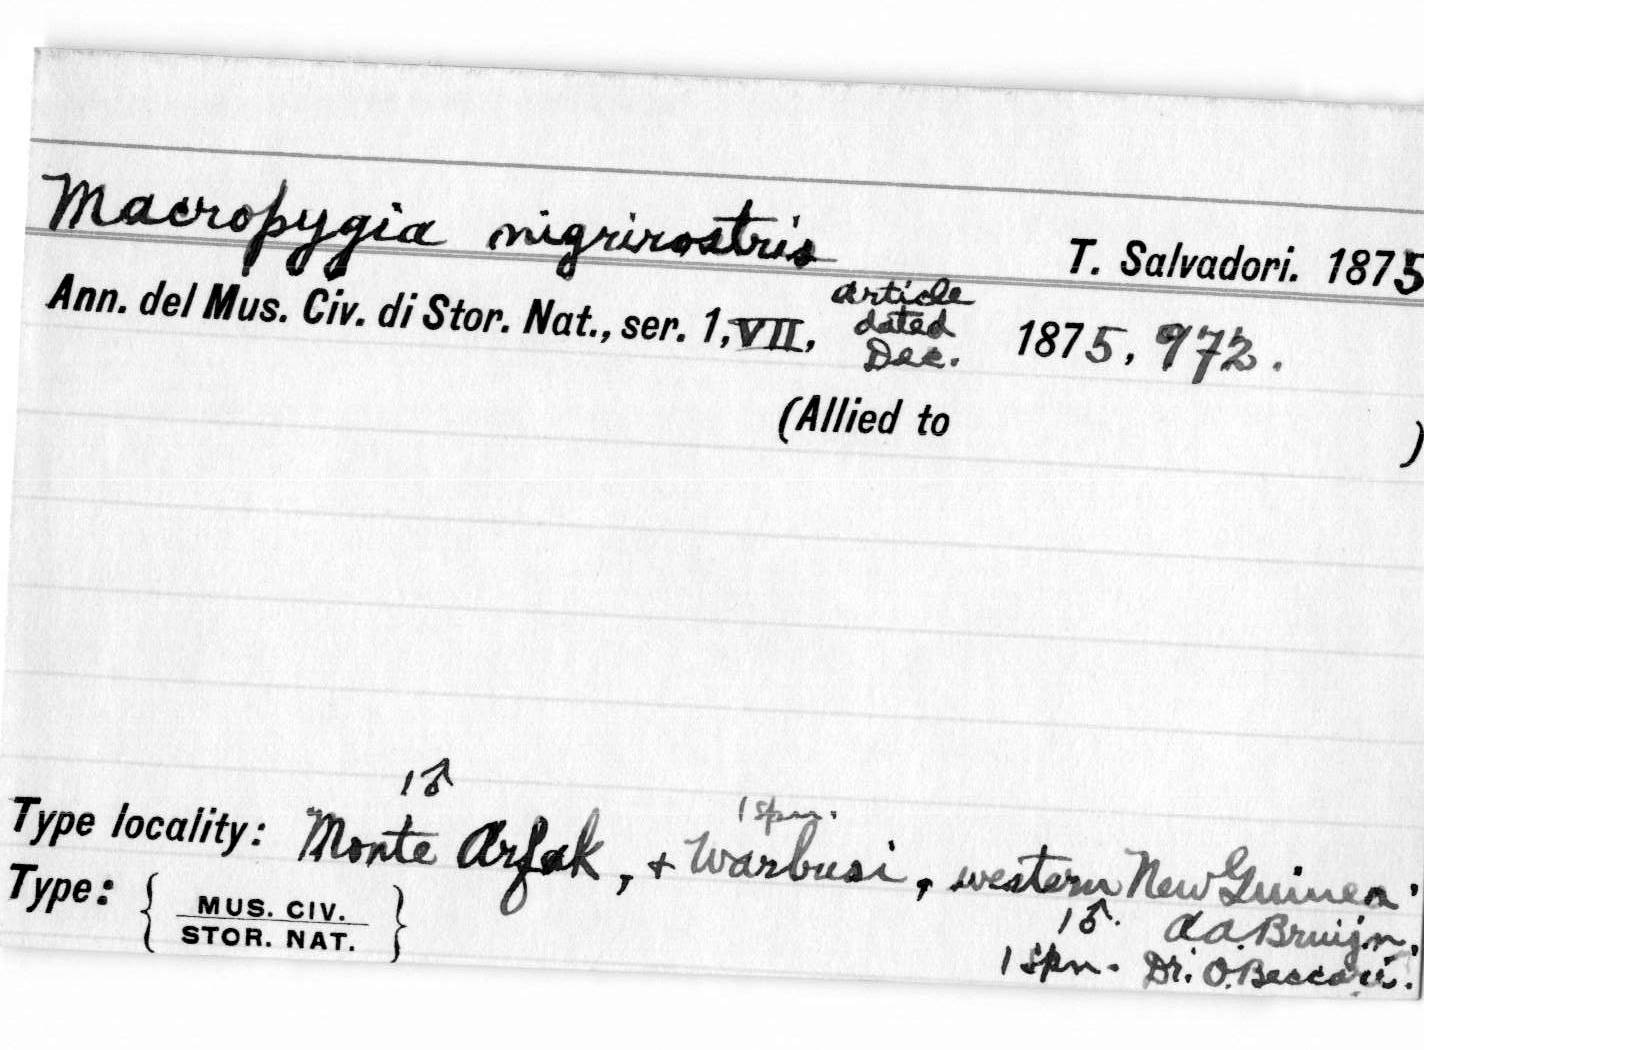 Macropygia nigrirostris T. Salvadori. 1875
Ann. del Mus. Civ. di Stor. Nat., ser. 1, VII, article dated Dec. 1875, 972.
(Allied to )
1♂ 1 spn.
Type locality: Monte Arfak, + Warbusi, western New Guinea.
Type: { MUS. CIV. STOR. NAT. } 1♂. A.A. Bruijn.
1 spn. Dr. O. Beccari.